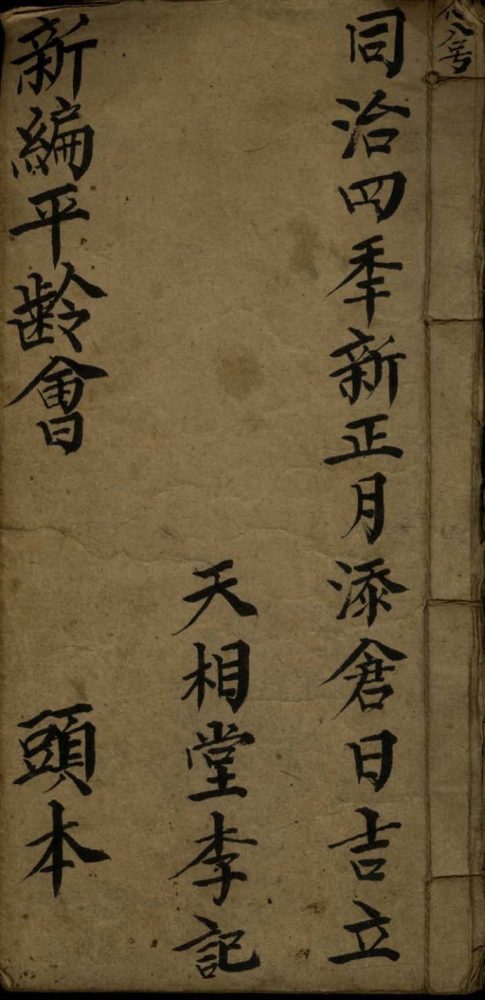 同治四年新正月添倉日吉立
天相堂李記
新編平齡會 頭本